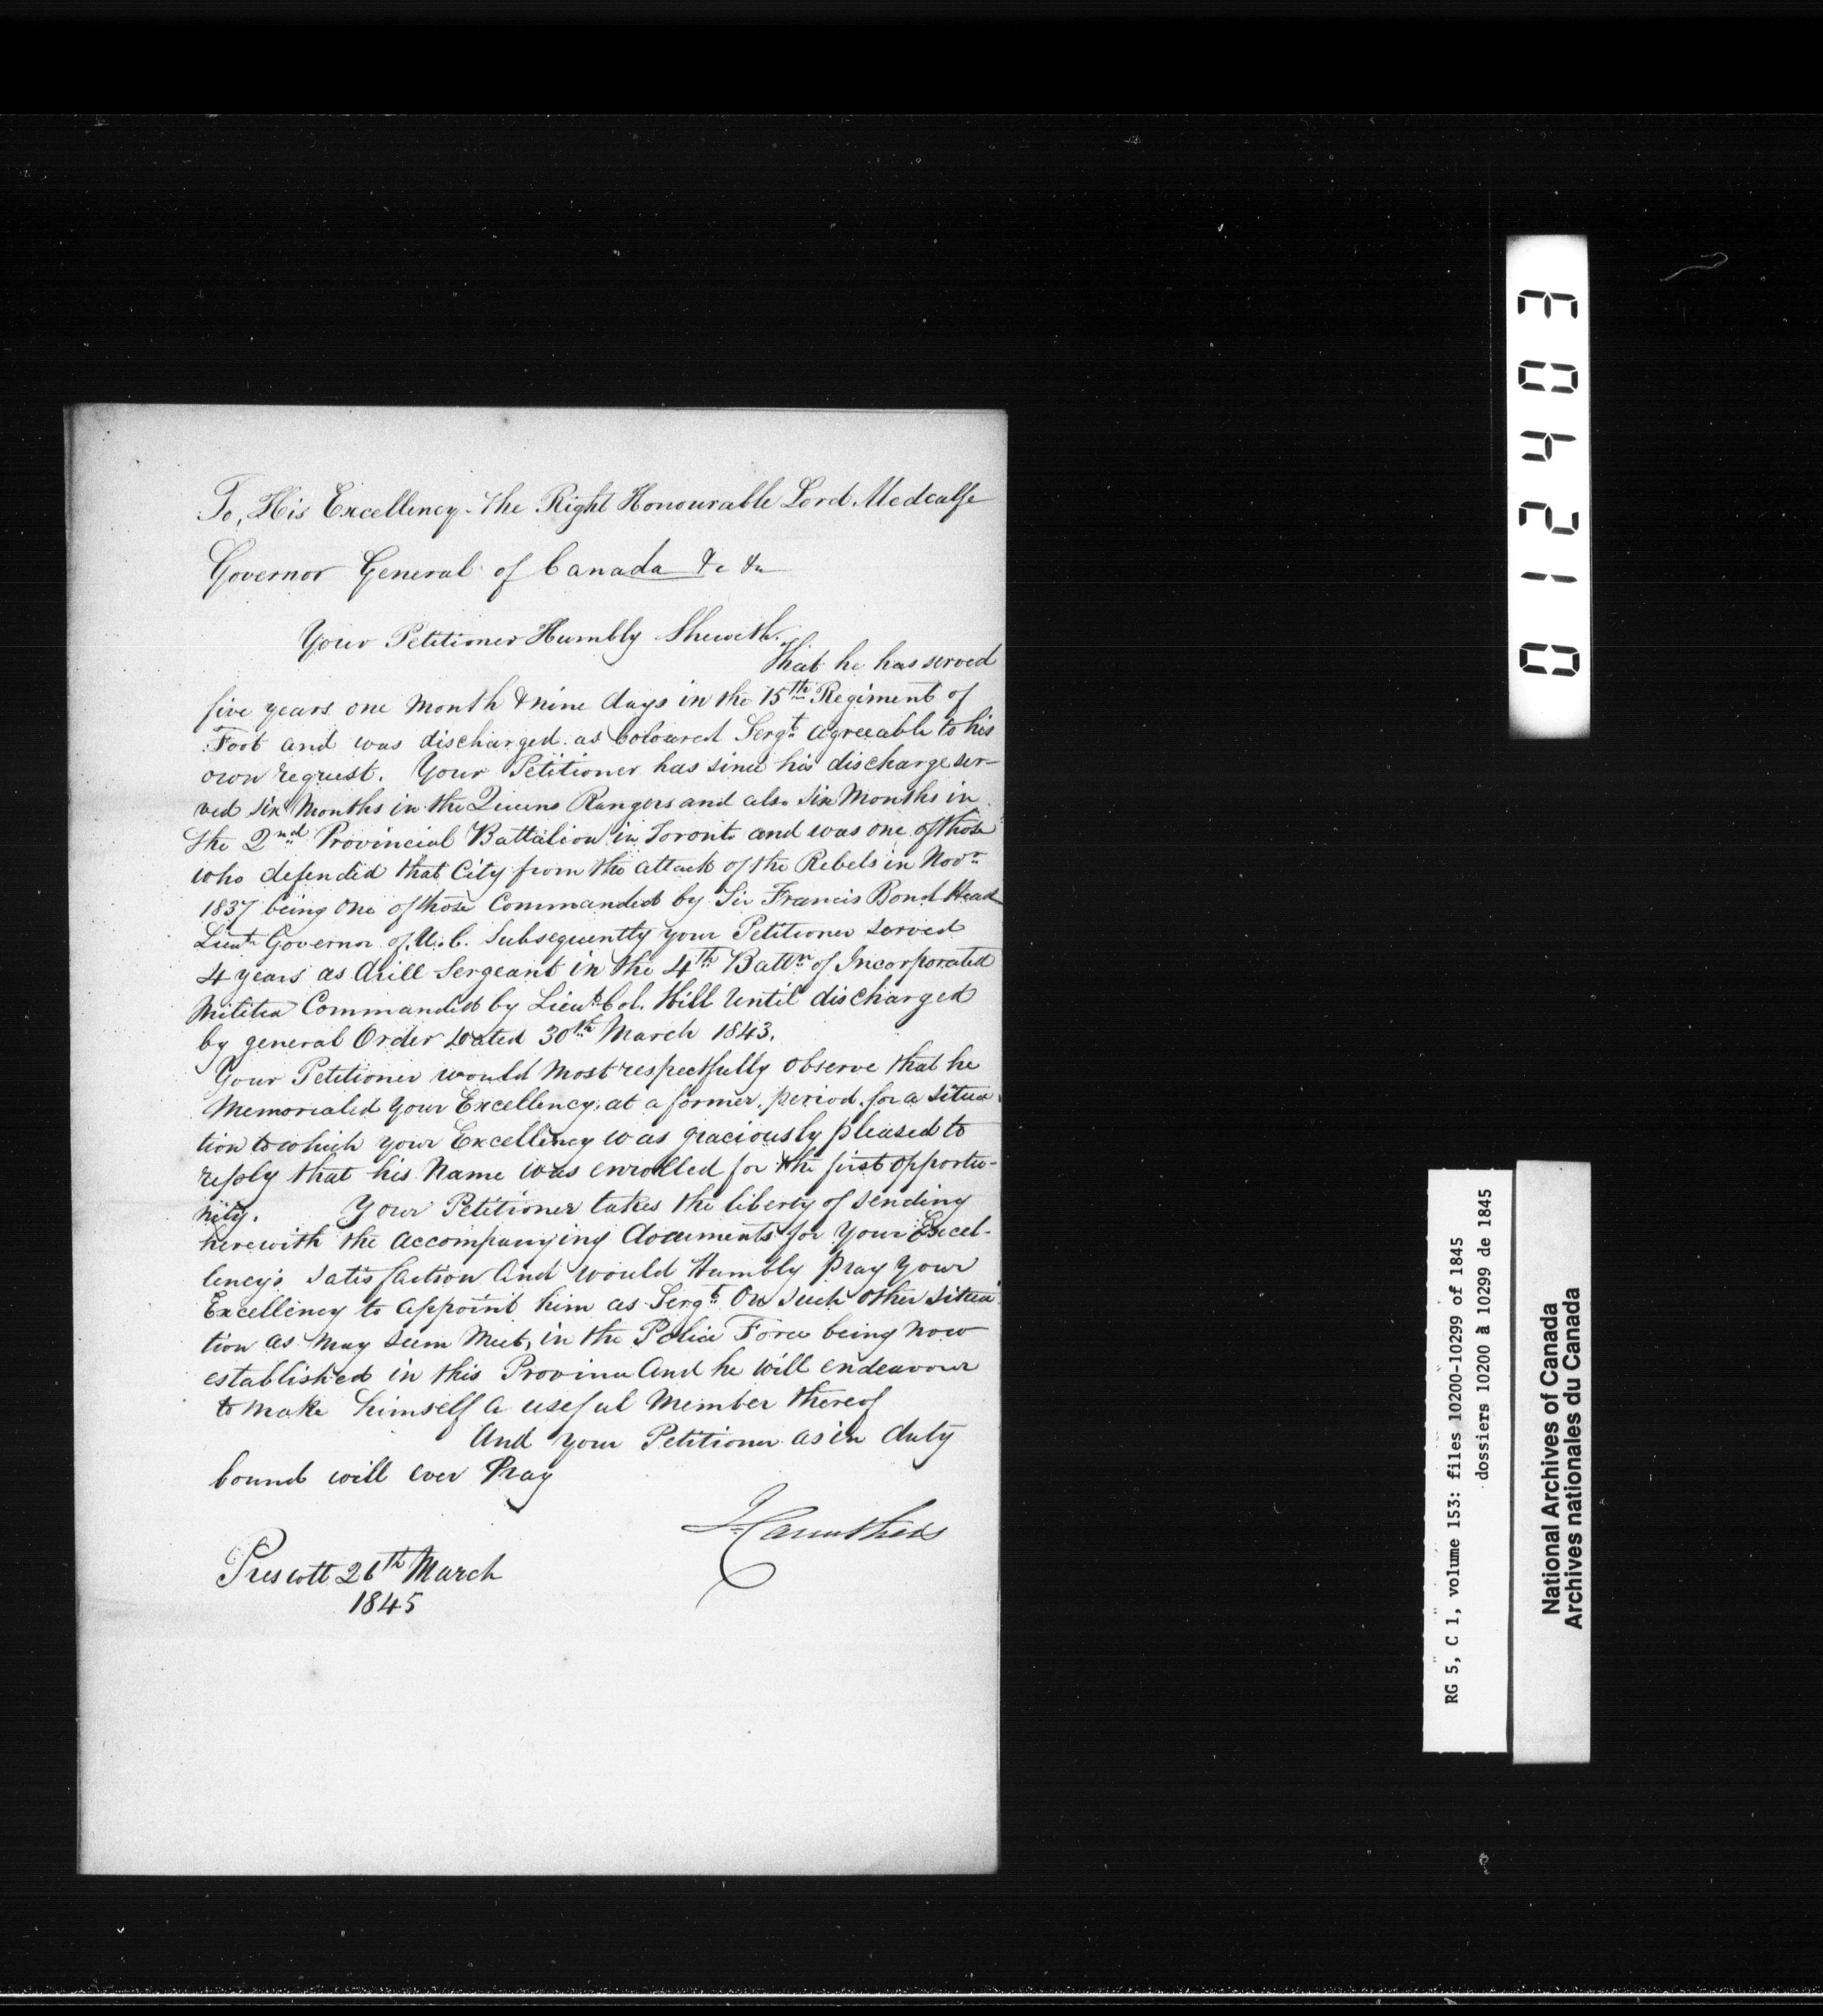 To, His Excellency - the Right Honourable Lord Medcalfe
Governor General of Canada &c &c
Your Petitioner Humbly Sheweth.
That he has served
five years one Month & nine days in the 15th Regiment of
Foot and was discharged as Coloured Sergt agreeable to his
own request. Your Petitioner has since his discharge ser-
ved six Months in the Queens Rangers and also Six Months in
the 2nd Provincial Battalion in Toronto and was one of those
who defended that City from the attack of the Rebels in Novr
1837 being One of those Commanded by Sir Francis Bond Head
Lieut Governor of U.C. Subsequently your Petitioner served
4 years as drill Sergeant in the 4th Battn of Incorporated
Militia Commanded by Lieut Col. Hill Until discharged
by general Order Dated 30th March 1843.
Your Petitioner would most respectfully observe that he
Memorialed Your Excellency, at a former period for a situa
tion to which your Excellency was graciously pleased to
reply that his Name was enrolled for the first opportu-
nity. Your Petitioner takes the liberty of sending
herewith the accompanying documents for Your Excel-
lency's satisfaction And would Humbly Pray Your
Excellency to appoint him as Sergt Or such other situa
tion as may seem Meet, in the Police Force being now
established in this Province And he will endeavour
to make himself a useful Member thereof
And your Petitioner as in duty
bound will ever Pray
J. Carruthers
Prescott 26th March
1845
0 1 2 4 0 3
RG 5, C 1, volume 153: files 10200-10299 of 1845
dossiers 10200 à 10299 de 1845
National Archives of Canada
Archives nationales du Canada